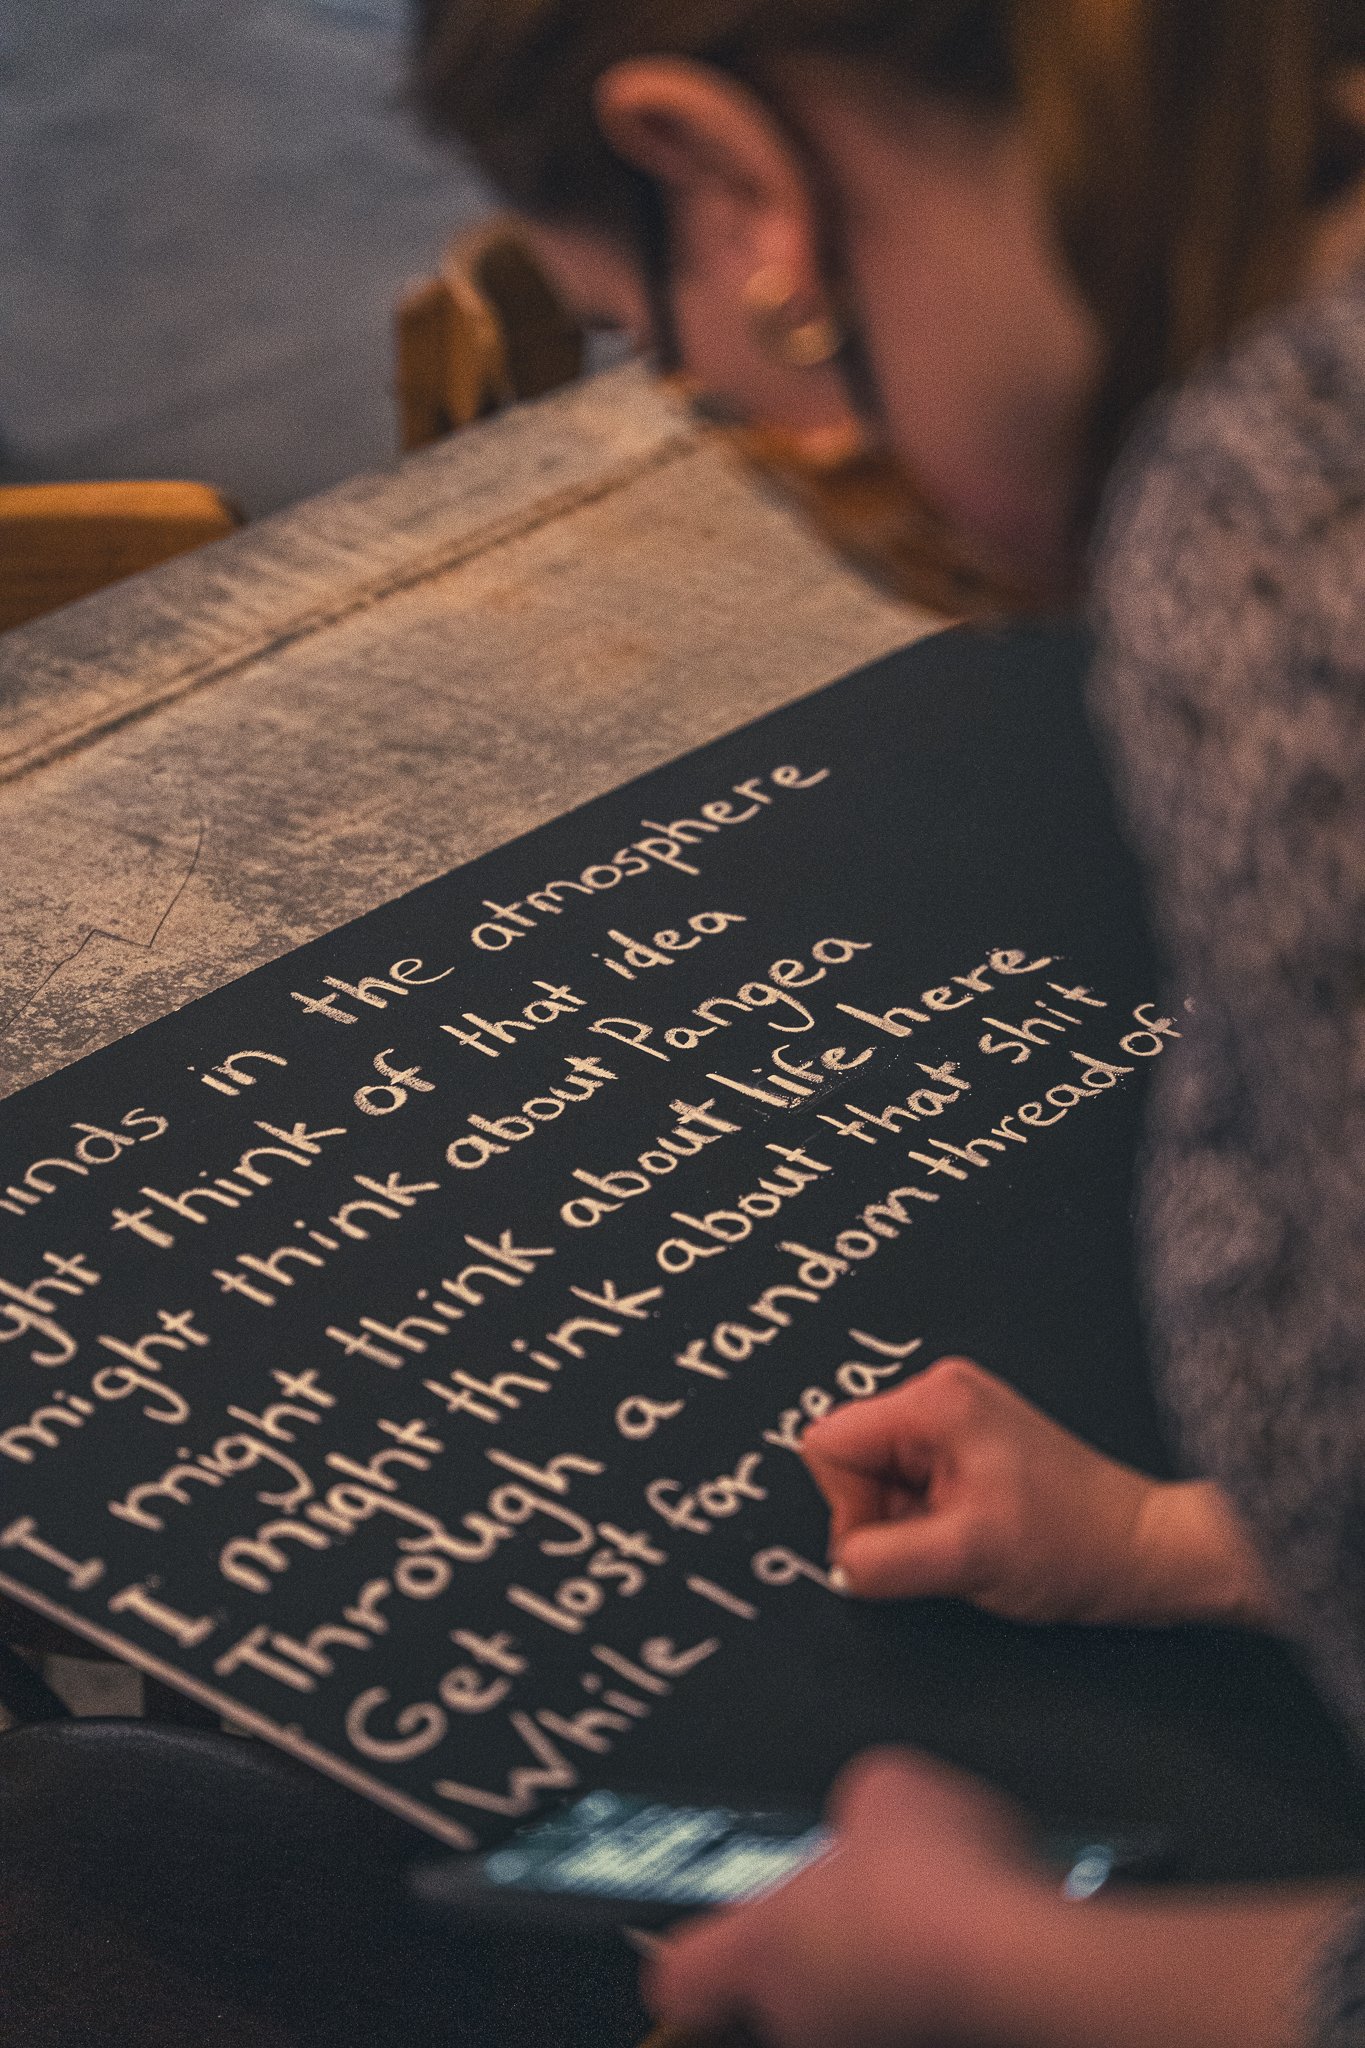 in the atmosphere
think of that idea
might think about pangea
I might think about life here
I might think about that shit
Through a random thread of
Get lost for real
While I